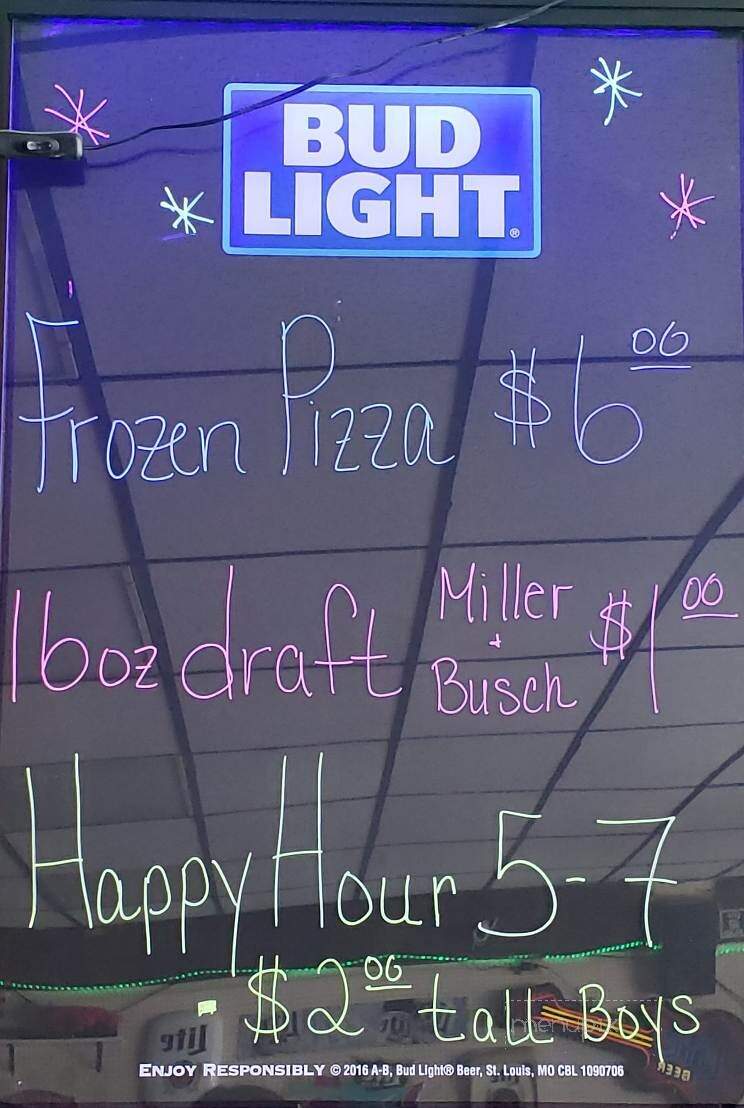 BUD
LIGHT®
Frozen Pizza $6 00
16oz draft Miller + Busch $1 00
Happy Hour 5-7
· $2 00 tall Boys
ENJOY RESPONSIBLY © 2016 A-B, Bud Light® Beer, St. Louis, MO CBL 1090706
Lite
BEER